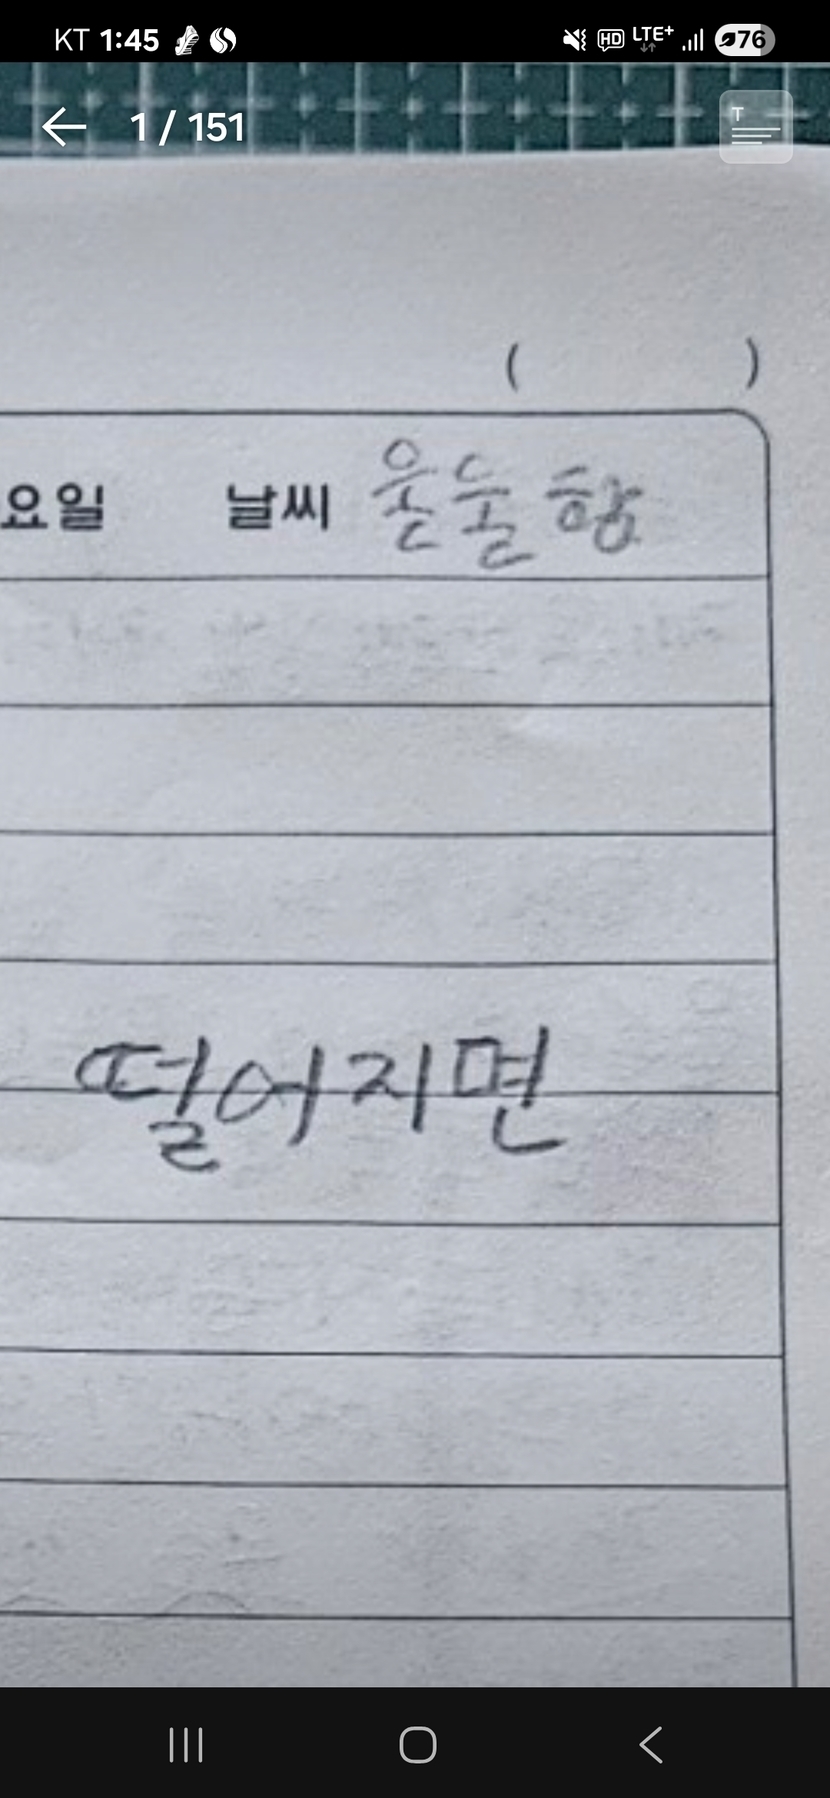 KT 1:45 HD LTE+ 76
1 / 151
T
( )
요일 날씨 운눌함
떨어지면